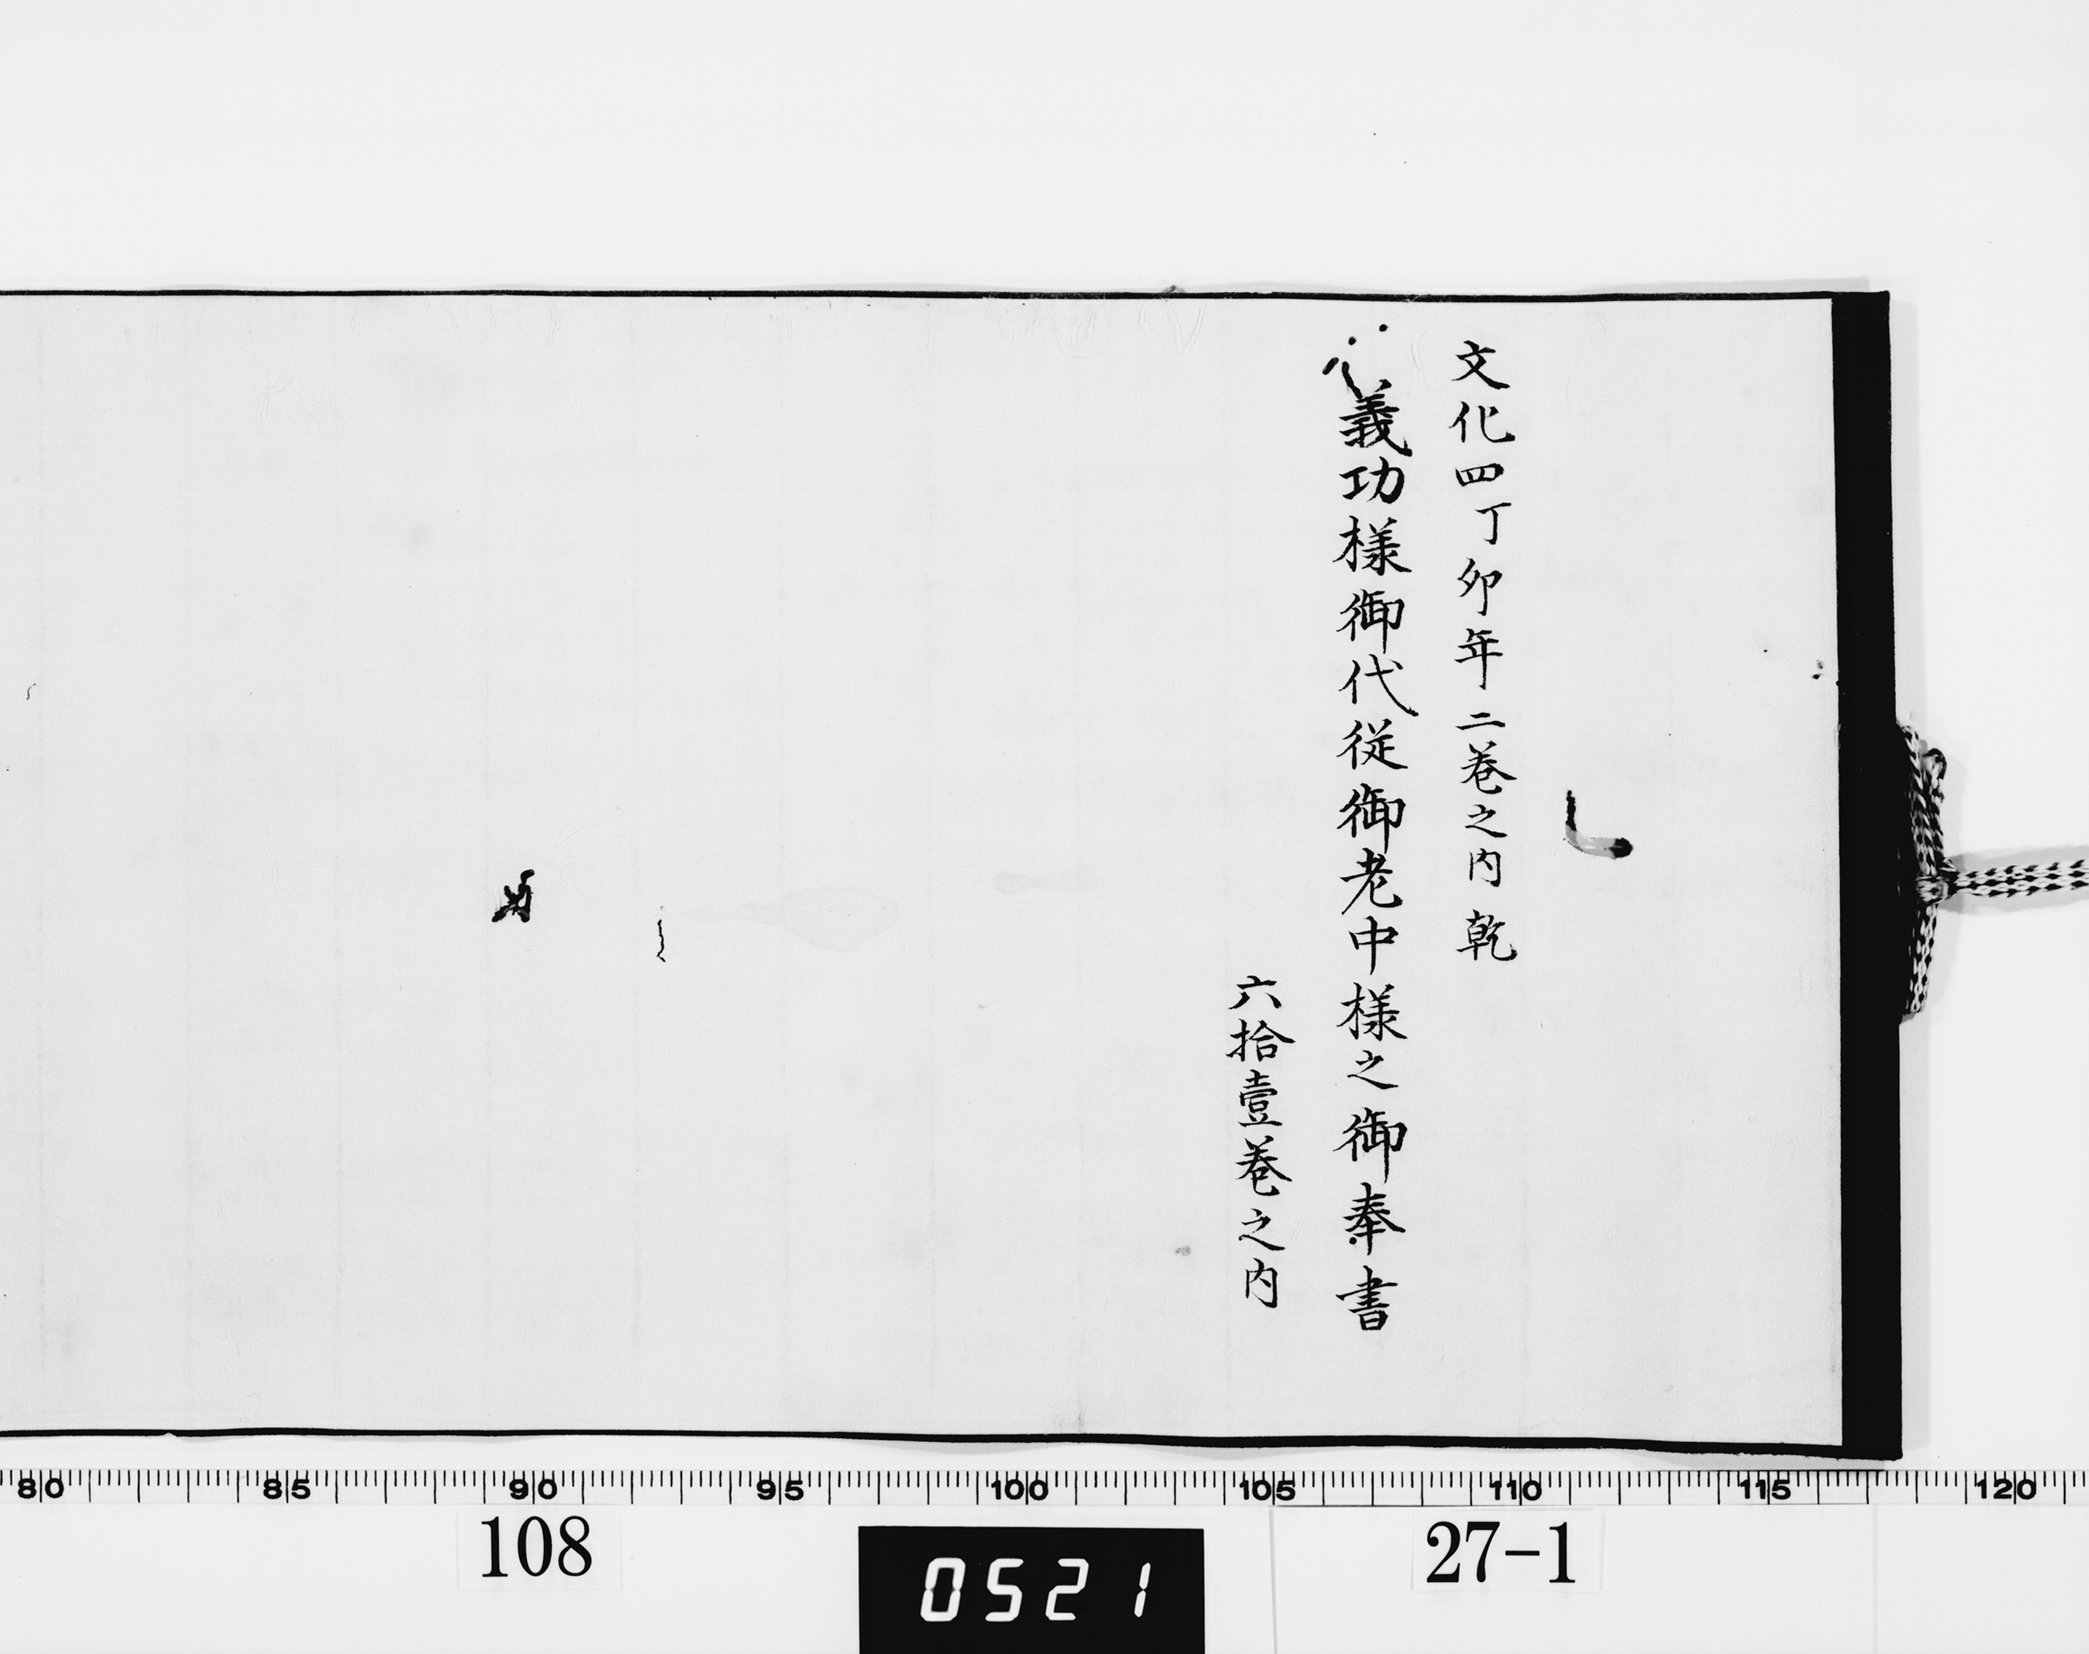 文化四丁卯年二巻之内乾
義功様御代従御老中様之御奉書
六拾壹巻之内
80 85 90 95 100 105 110 115 120
108
0521
27-1